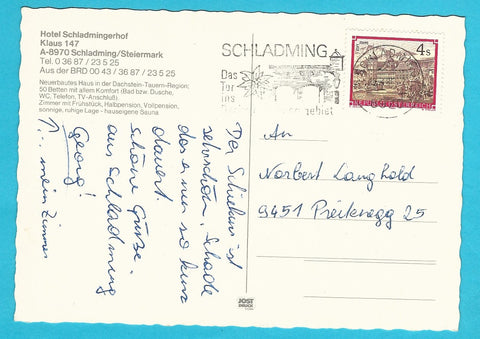 Hotel Schladmingerhof
Klaus 147
A-8970 Schladming/Steiermark
Tel. 0 36 87 / 23 5 25
Aus der BRD 00 43 / 36 87 / 23 5 25
Neuerbautes Haus in der Dachstein-Tauern-Region;
50 Betten mit allem Komfort (Bad bzw. Dusche,
WC, Telefon, TV-Anschluß)
Zimmer mit Frühstück, Halbpension, Vollpension,
sonnige, ruhige Lage - hauseigene Sauna
SCHLADMING
Das
Tor
ins
gebiet
4 s
REPUBLIK ÖSTERREICH
Der Schikurs ist
sehr schön, Schade
das er nur so kurz
dauert.
schöne Grüße
aus Schladming
Georg!
↑... mein Zimmer
An
Norbert Langhold
9451 Preitenegg 25
JOST
DRUCK